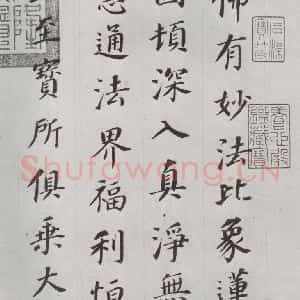 佛有妙法比象蓮
頃深入真淨無
通法界福利恒
至寶所俱乗大
Shufawang.CN